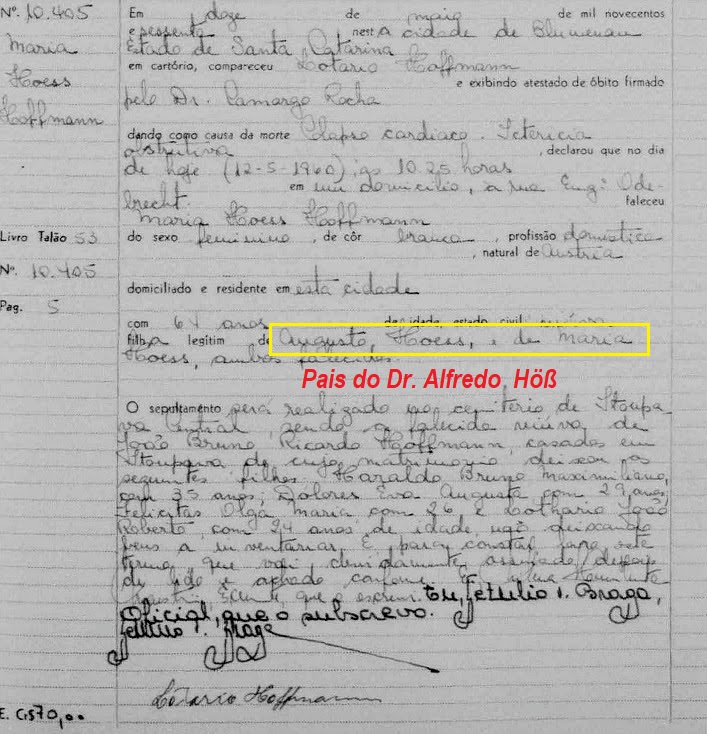 Nº. 10.405
Maria
Hoess
Hoffmann
Livro Talão 53
Nº. 10.405
Pag. 5
E. Cr$70,00
Em doze de maio de mil novecentos
e sessenta nesta cidade de Blumenau
Estado de Santa Catarina
em cartório, compareceu Lotario Hoffmann
e exibindo atestado de óbito firmado
pelo Dr. Camargo Rocha
dando como causa da morte Colapso cardiaco. Ictericia
obstrutiva, declarou que no dia
de hoje (12-5-1960) às 10.25 horas
em seu domicilio, a rua Engº Ode-
brecht. faleceu
Maria Hoess Hoffmann
do sexo feminino, de côr branca, profissão domestica
, natural de Austria
domiciliado e residente em esta cidade
com 64 anos de idade, estado civil viúva
filha legitim de Augusto, Hoess, e de Maria
Hoess, ambos falecidos.
Pais do Dr. Alfredo Höß
O sepultamento será realizado no cemiterio de Itoupa
va Central, sendo a falecida viúva de
João Bruno Ricardo Hoffmann, casados em
Itoupava, de cujo matrimonio deixou os
seguintes filhos: Haraldo Bruno Maximiliano,
com 35 anos; Dolores Eva Augusta com 29 anos;
Felicitas Olga Maria com 26, e Lothario João
Roberto, com 24 anos de idade, não deixando
bens a inventariar. E, para constar, faço este
termo, que vai, devidamente assinado, depois
de lido e achado conforme. Eu
Escrevente, que o escrevi. Eu, Getulio V. Braga,
Oficial, que o subscrevo.
Getulio V. Braga
Lotario Hoffmann